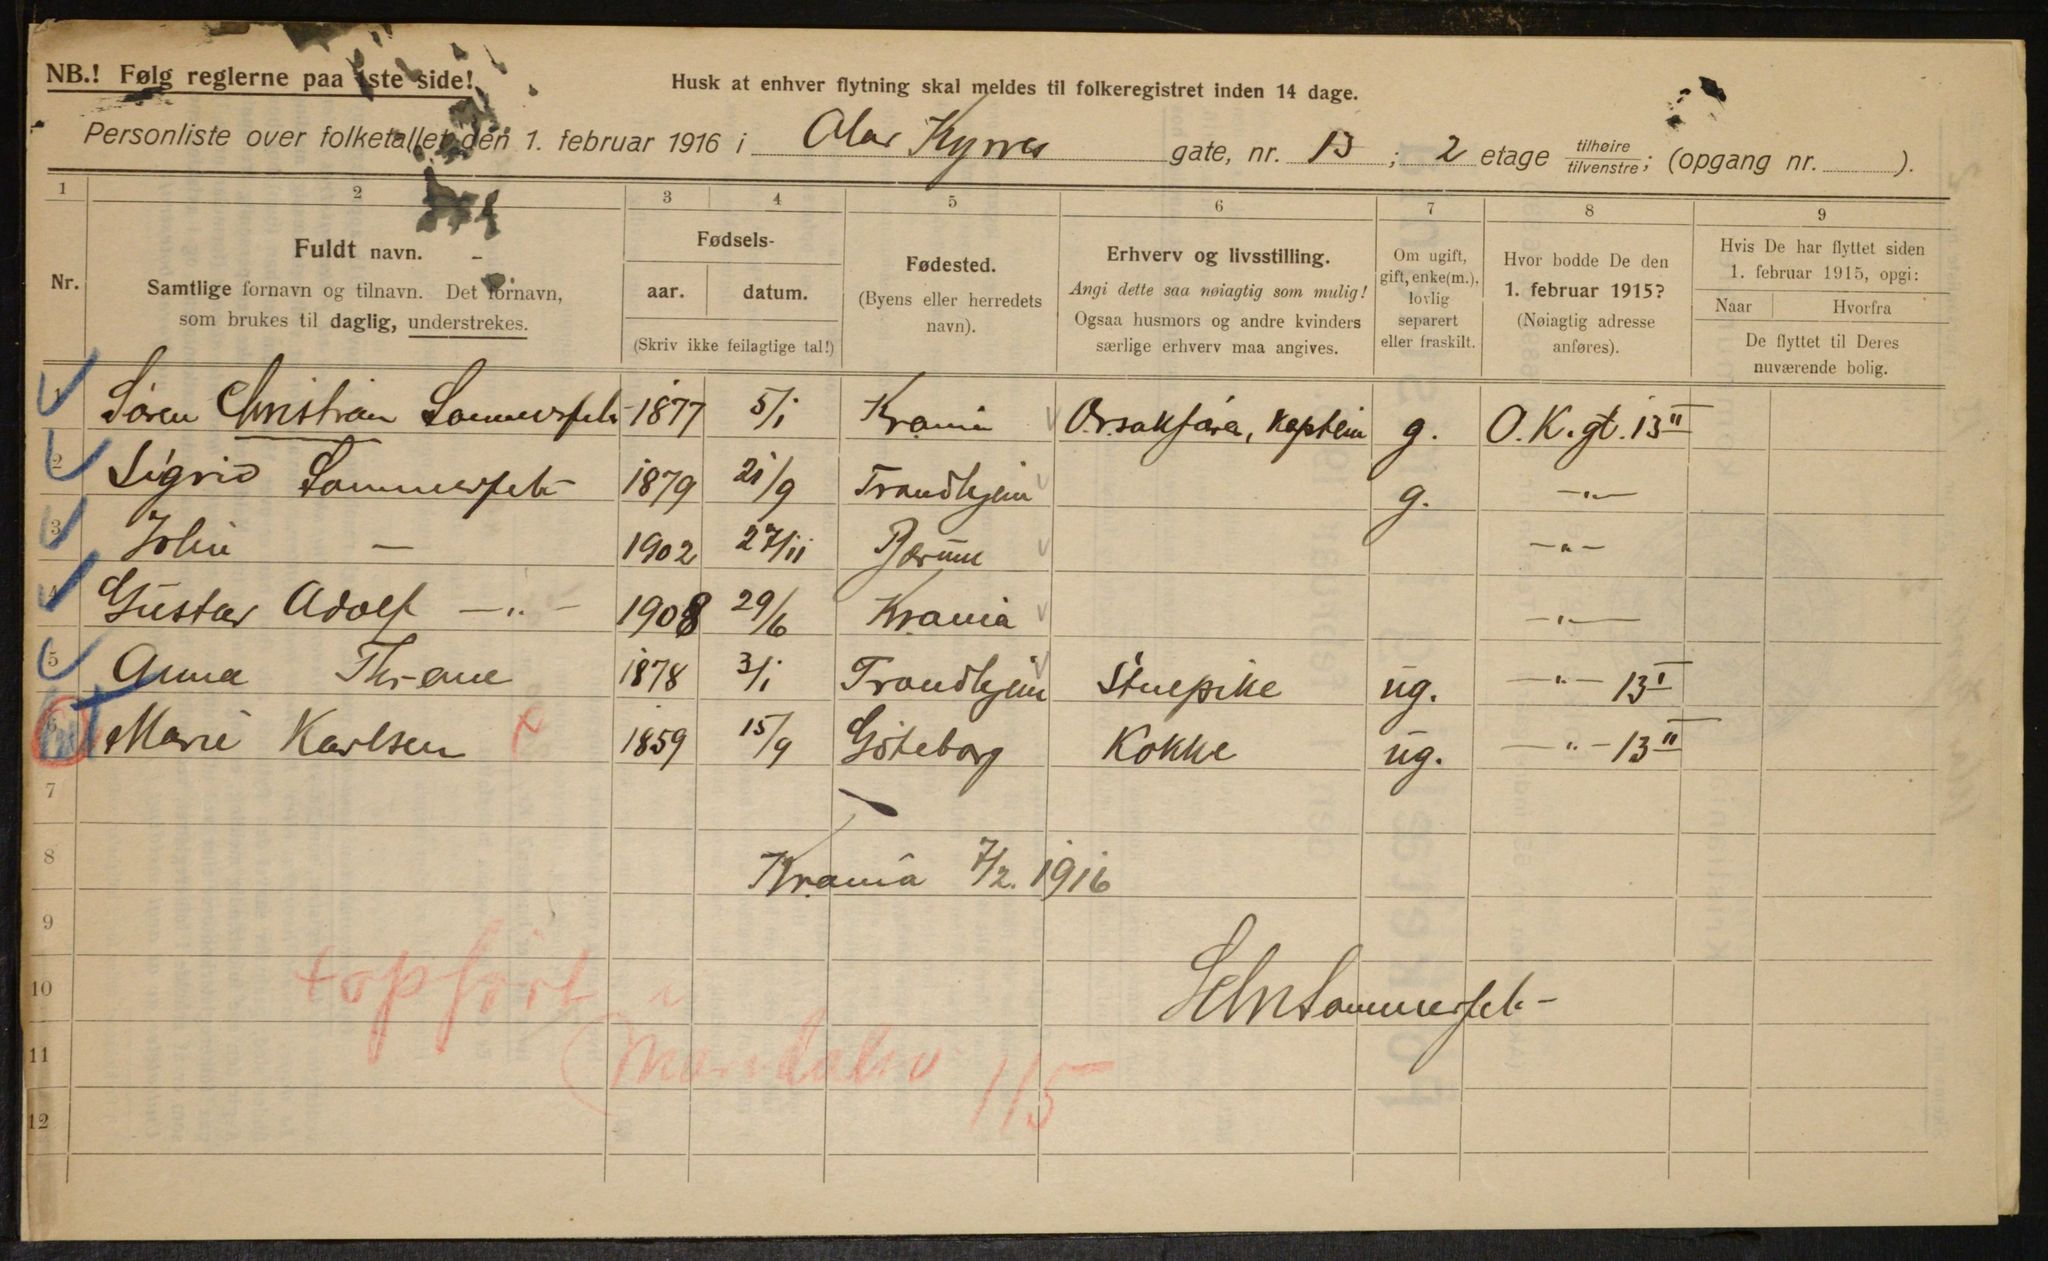 NB.! Følg reglerne paa 1ste side!
Husk at enhver flytning skal meldes til folkeregistret inden 14 dage.
Personliste over folketallet den 1. februar 1916 i Olav Kyrres gate, nr. 13 ; 2 etage tilhøire tilvenstre; (opgang nr. ).
1 2 3 4 5 6 7 8 9
Nr.
Fuldt navn.
Samtlige fornavn og tilnavn. Det fornavn,
som brukes til daglig, understrekes.
Fødsels-
aar. datum.
(Skriv ikke feilagtige tal!)
Fødested.
(Byens eller herredets
navn).
Erhverv og livsstilling.
Angi dette saa nøiagtig som mulig!
Ogsaa husmors og andre kvinders
særlige erhverv maa angives.
Om ugift,
gift, enke(m.),
lovlig
separert
eller fraskilt.
Hvor bodde De den
1. februar 1915?
(Nøiagtig adresse
anføres).
Hvis De har flyttet siden
1. februar 1915, opgi:
Naar Hvorfra
De flyttet til Deres
nuværende bolig.
1 Sören Christian Sommerfelt 1877 5/1 Krania O.r.sakfører, kaptein g. O.K.gt. 13 II
2 Sigrid Sommerfelt 1879 21/9 Trondhjem g. —"—
3 John — 1902 27/11 Bærum —"—
4 Gustav Adolf —"— 1908 29/6 Krania —"—
5 Anna Thrane 1878 3/1 Trondhjem Stuepike ug. —"— 13 I
6 Marie Karlsen x 1859 15/9 Göteborg Kokke ug. —"— 13 II
7
8 Krania 7/2. 1916
9
10 SChrSommerfelt
opført i
11
115
12